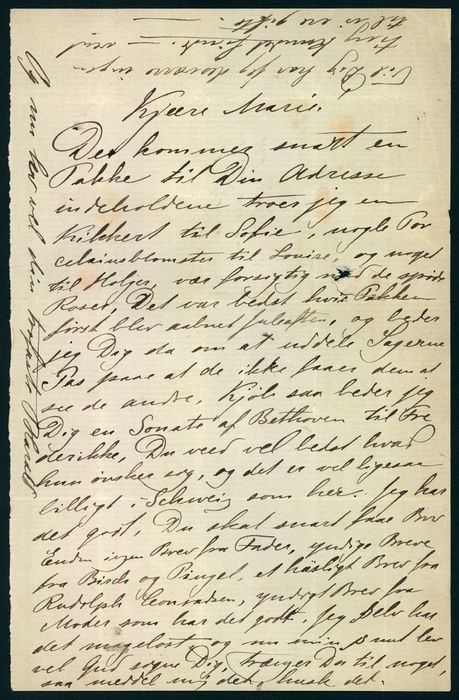 Kjære Marie.
Der kommer snart en
Pakke til Din Adresse
indeholdene troer jeg en
Kikkert til Sofie, nogle Por
celainsblomster til Louise, og noget
til Holger, vær forsigtig med de sprøde
Roser, Det var bedst hvis Pakken
først blev aabnet Juleaften, og beder
jeg Dig da om at uddele Sagerne
Pas paa at de ikke faaer dem at
see de andre. Kjøb saa beder jeg
Dig en Sonate af Bethoven til Fre
derikke, Du veed vel bedst hvad
hun ønsker sig, og det er vel ligesaa
billigt i Schweiz som her. Jeg har
det godt, Du skal snart faae Brev
Endnu ingen Brev fra Fader, yndige Breve
fra Bisch og Pinget, et häsligt Brev fra
Rudolph Conradsen, yndigt Brev fra
Moder som har det godt. Jeg selv har
det mageløst og nu min lev
vel Gud signe Dig, trænger Du til noget,
saa meddel mig det, husk det.
Og nu lev vel din trofaste Harald
Dig har jeg ingen